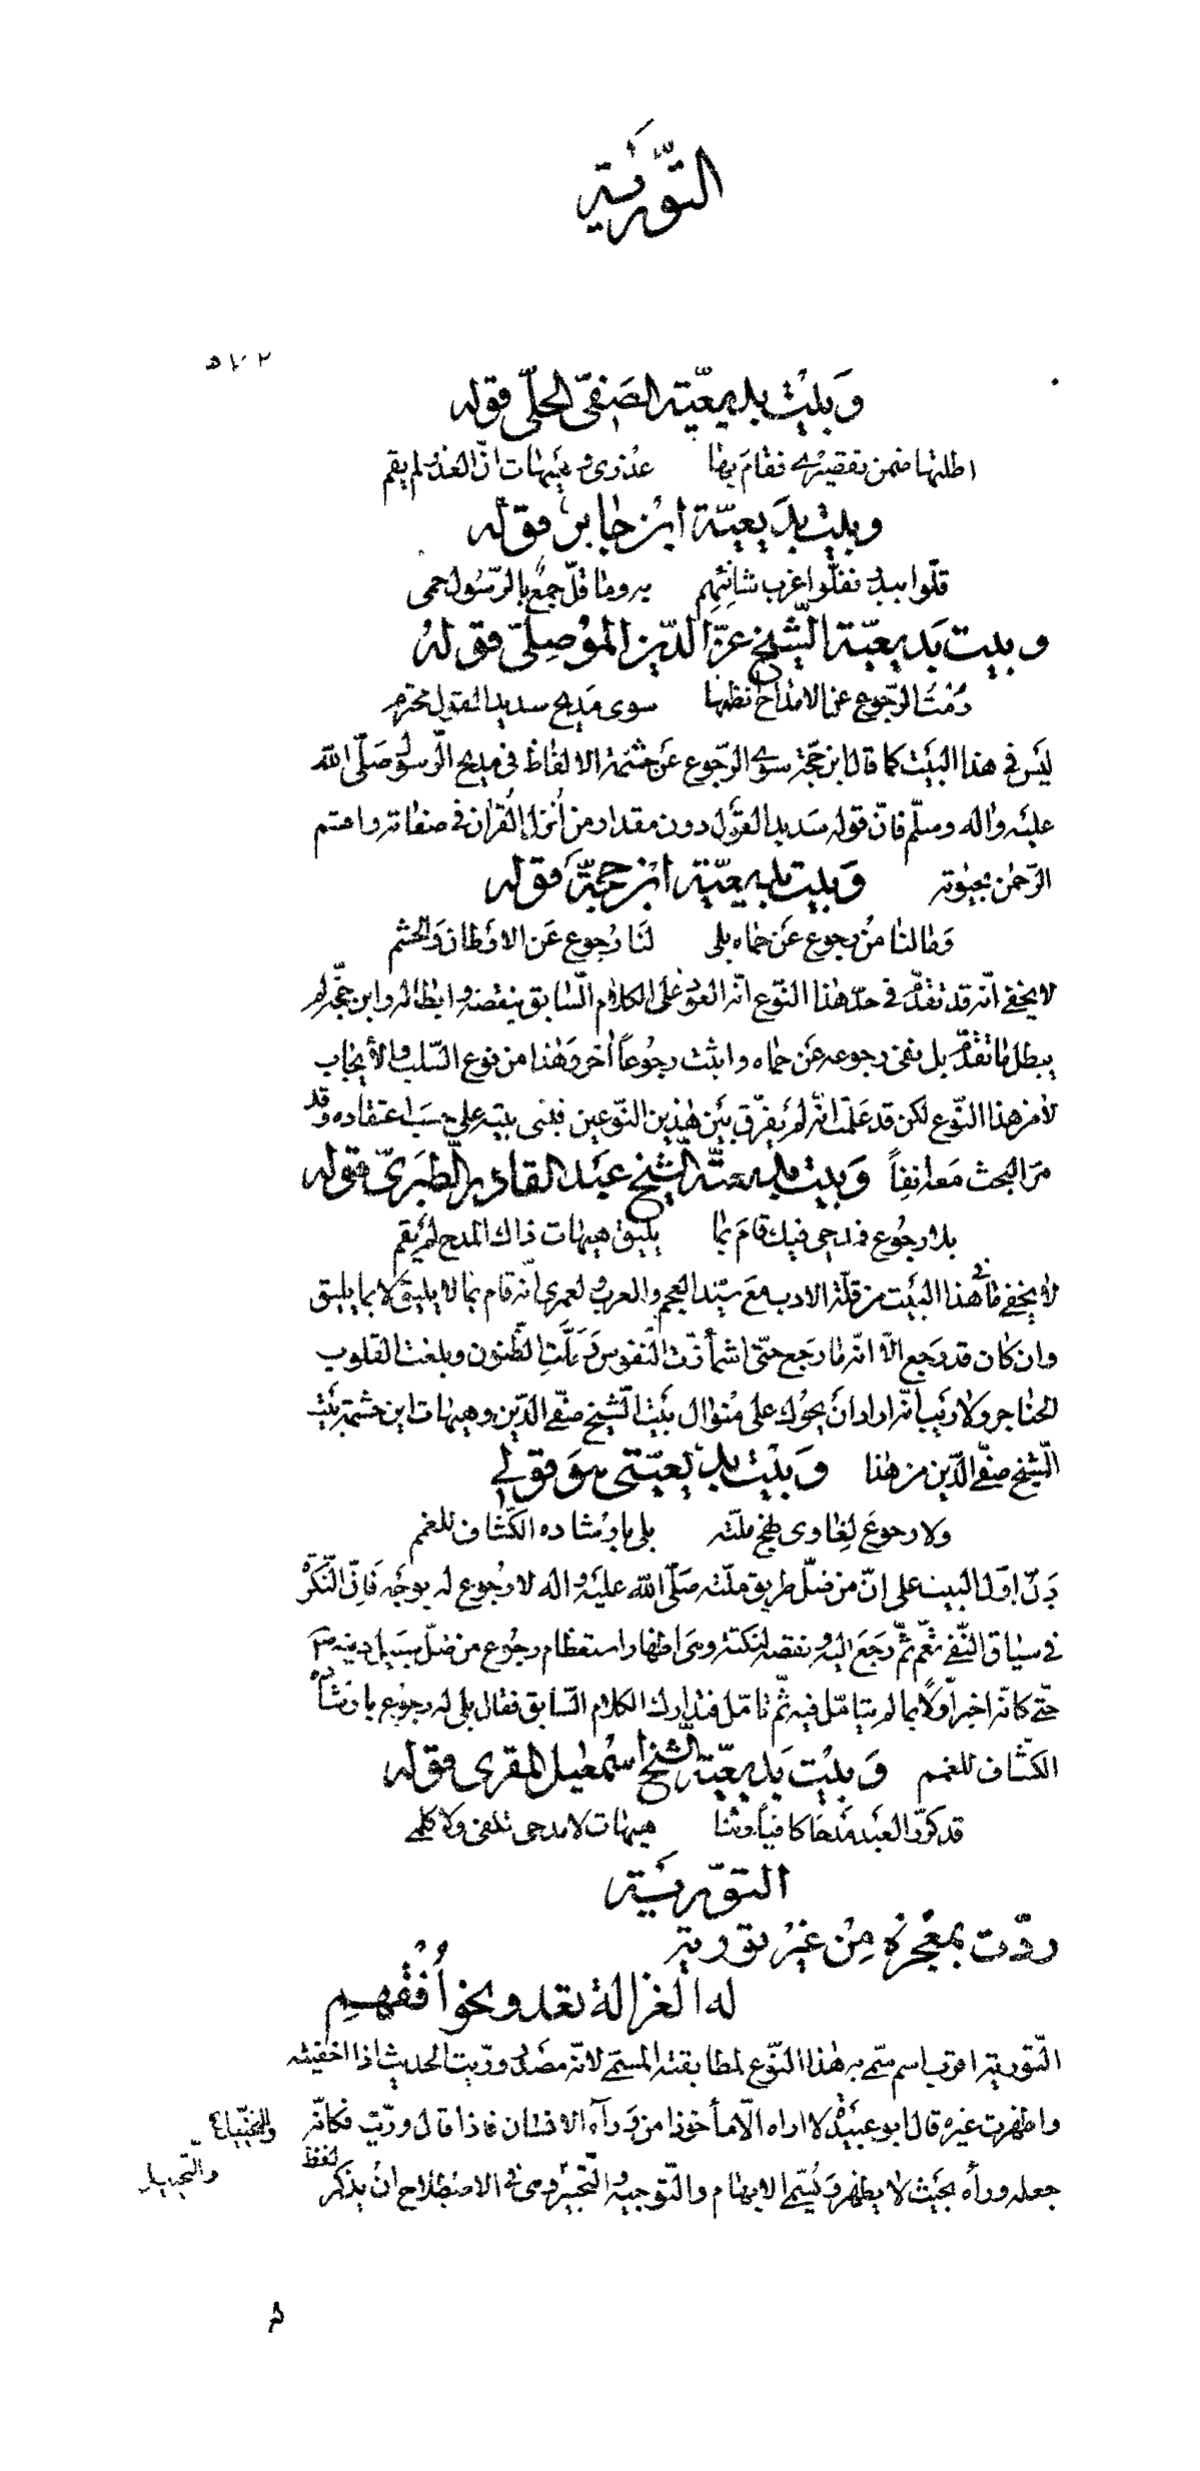 التّورية
وَبيْت بديعيّة الصَفىّ الحلّى قوله
اطلتها ضمن تقصيرى فقام بها عذرى وهيهات انّ العذر لم يقم
وبيت بدَيعيّة ابن جابر فقوله
قلّوا ببدر ففلّوا غرب شانئهم به وما قلّ جمعٌ بالرّسول حمى
وبيت بَديعيّة الشّيخ عزّ الدّين الموْصِلىّ فقولهُ
رُمْتُ الرّجوع عن الامداح انظمها سوى مَديح سديد القول محترم
ليَس فى هذا البَيت كما قال ابن حجّة سوى الرّجوع عَن حشمة الالفاظ فى مديح الرّسول صَلّى الله
عليَه واله وسلّم فانّ قوله سَديد القوَل دون مقدار من اُنزل القُران فى صفاته واعتم
الرّحمن بحيوته وَبيت بديعيّة ابن حجّةَ فقوله
وَمالنا مُن رجوع عَن حماه بلى لنَا رُجوع عَن الاوَطان وَالحشم
لا يخفى انّه قد تقدّمَ فى حدّ هذا النّوع انّه العود على الكلام السّابق بنقضه وابطاله وابن حجّة لم
يبطل ما تقدّمَ بل نفى رجوعه عَن حماه واثبت رجُوعاً اٰخر وَهذا من نوع السّلب والأيجاب
لا من هذا النّوع لكن قد علَمت انّه لم يفرّق بَين هذين النّوعين فبنى بيته على حسَب اعتقاده وقد
مرّ البحث مَعه انفاً وَبيت بديعيّة الشّيخ عبَد القادر الطّبَرىّ فقوله
بلا رجُوع فمدحى فيك قامَ بما يليق هيهات ذاك المدح لم يَقم
لا يخفى ما فى هذا البَيت من قلّة الادب مَع سيّد العجم والعرب ولعمرى انّه قام بما لا يليق لا بما يليق
وان كان قد رَجع الّا انّه ما رَجع حتّى اشمأزّت النّفوس وَ وَلَّت الظّنون وبلغت القلوب
الحناجر ولا رَيب انّه اراد انَ يحوُك على مُنوال بَيت الشّيخ صفىّ الدّين وهيهات اين حشمة بَيت
الشّيخ صفىّ الدّين من هذا وَبَيْت بديْعيّتى هوَ قولى
ولا رجوعَ لِغاوى نهج ملّته بلى بارشاده الكشّاف للغمم
دَلّ اوّل البيت على انّ من ضلّ طريق ملّته صَلّى الله عليَه واله لا رُجوع له بوجَه فَانّ النّكرة
فى سياق النّفى تعُمّ ثمّ رَجعَ اليه ونقضه لنكتة وهى اظهار استعظام رجُوع من ضلّ سبَيل دينه
حتّى كانّه اخبر اوّلاً بما لم يتامّل فيه ثمّ تامّل فتدارك الكلام السّابق فقال بلى له رجوُع بارشاد
الكشّاف للغمم وَبيْت بَديعيّة الشّيخ اسْمعيل المقرى فقوله
قد كرّر العَبد مَدحا كافياً وثنا هيهات لا مدحى تلفى ولا كلمى
التوّريَة
روّت بمعْجزةٍ مِنْ غيْر تورية
له الغزالة تعدو نحو اُفْقهِم
التّورية اقرب اسم سمّى به هذا النّوع لمطابقته المسمّى لانّه مصَدر ورّيت الحديث اذا اخفيته
واظهرت غيره قال ابو عبَيدة لا اراه الّا مأخوذا من وَرآء الانسان فاذا قال ورّيت فكانّه
جعله ورآء بحَيث لا يظهر وَيُسمّى الايهام والتّوجيه والتّخيير وهى فى الاصطلاح انْ يذكر لفظ
والتّخييل